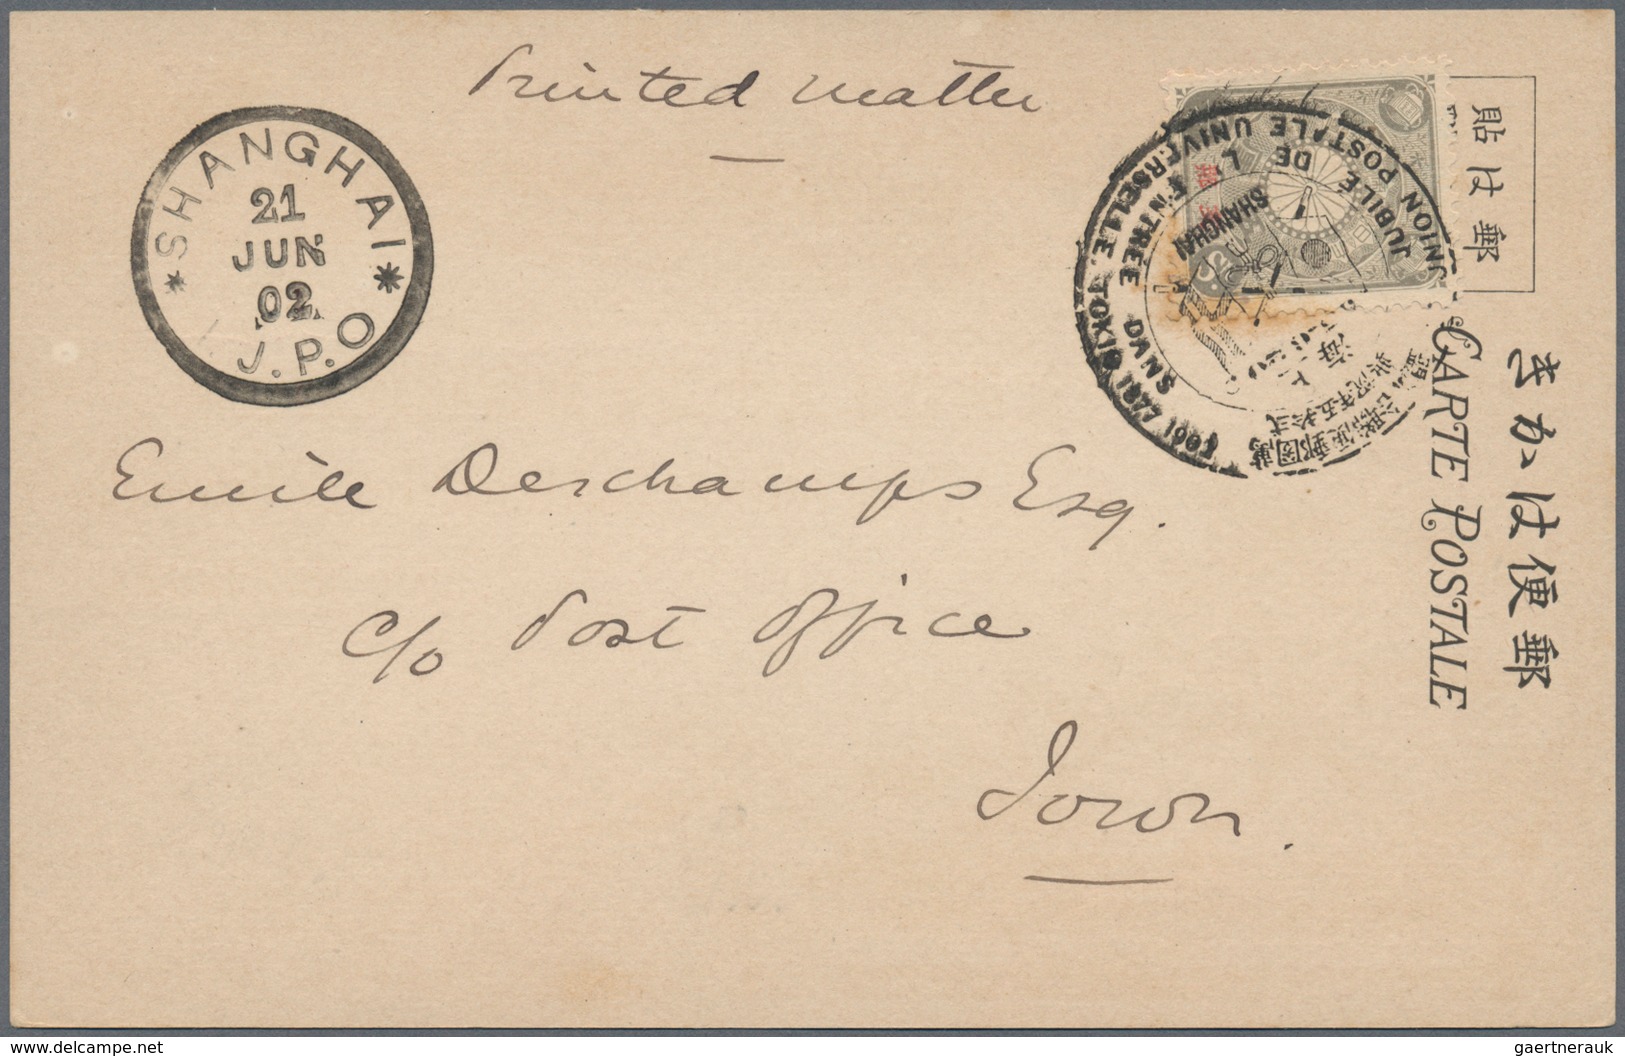 Printed matter
SHANGHAI
21
JUN
02
J.P.O
JUBILÉ DE L'ENTRÉE DANS
UNION POSTALE UNIVERSELLE. TOKIO 1877 1902
SHANGHAI
海
貼は郵
きかは便郵
CARTE POSTALE
Emile Deschamps Esq.
c/o Post Office
Town.
www.delcampe.net
gaertnerauk